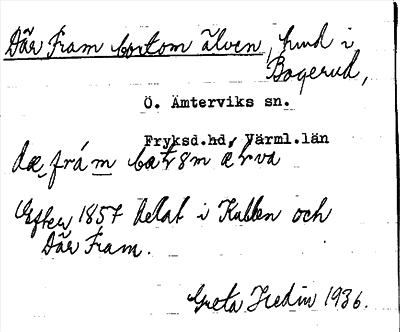 Där Fram bortom älven, hmd i
Bogerud,
Ö. Ämterviks sn.
Fryksd.hd, Värml.län
dæ frá m
Efter 1857 delat i Kullen och
Där Fram.
Greta Hedin 1936.